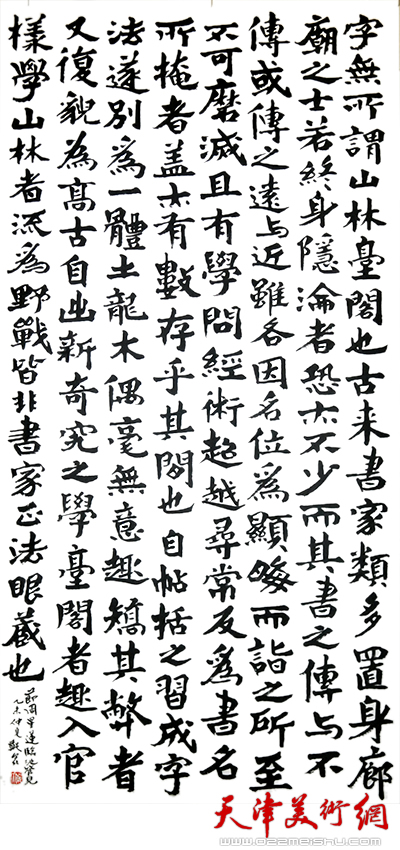 字無所謂山林臺閣也古来書家類多置身廊
廟之士若終身隱淪者恐亦不少而其書之傳与不
傳或傳之遠与近雖各因名位為顯晦而詣之所至
不可磨滅且有學問經術超越尋常反為書名
所掩者盖亦有數存乎其間也自帖括之習成字
法遂別為一體土龍木偶毫無意趣矯其弊者
又復貌為高古自出新奇究之學臺閣者趣入官
樣學山林者流為野戰皆非書家正法眼藏也
節周星蓮臨池管見
乙未仲夏
天津美術網
www.022meishu.com